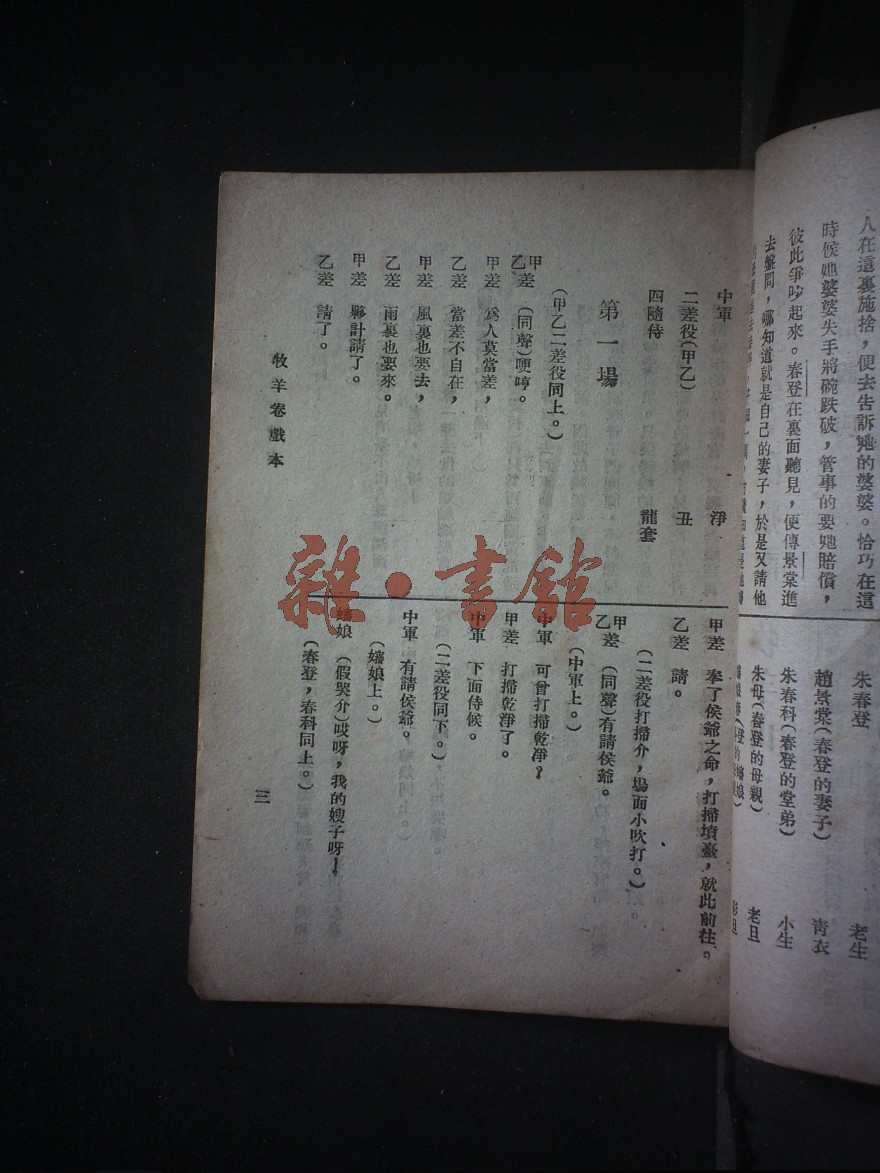 人在這裏施捨，便去告訴她的婆婆。恰巧在這
時候她婆婆失手將碗跌破，管事的要她賠償，
彼此爭吵起來。春登在裏面聽見，便傳景棠進
去盤問，哪知道就是自己的妻子，於是又請他
朱春登 老生
趙景棠（春登的妻子） 青衣
朱春科（春登的堂弟） 小生
朱母（春登的母親） 老旦
中軍 淨
二差役（甲乙） 丑
四隨侍 龍套
第一場
（甲乙二差役同上。）
甲乙差 （同聲）哽哼。
甲差 爲人莫當差，
乙差 當差不自在，
甲差 風裏也要去，
乙差 雨裏也要來。
甲差 夥計請了。
乙差 請了。
甲差 奉了侯爺之命，打掃墳臺，就此前往。
乙差 請。
（二差役打掃介，場面小吹打。）
甲乙差 （同聲）有請侯爺。
（中軍上。）
中軍 可曾打掃乾淨？
甲差 打掃乾淨了。
中軍 下面侍候。
（二差役同下。）
中軍 有請侯爺。
（嬸娘上。）
嬸娘 （假哭介）哎呀，我的嫂子呀！
（春登，春科同上。）
牧羊卷戲本
三
雜·書館